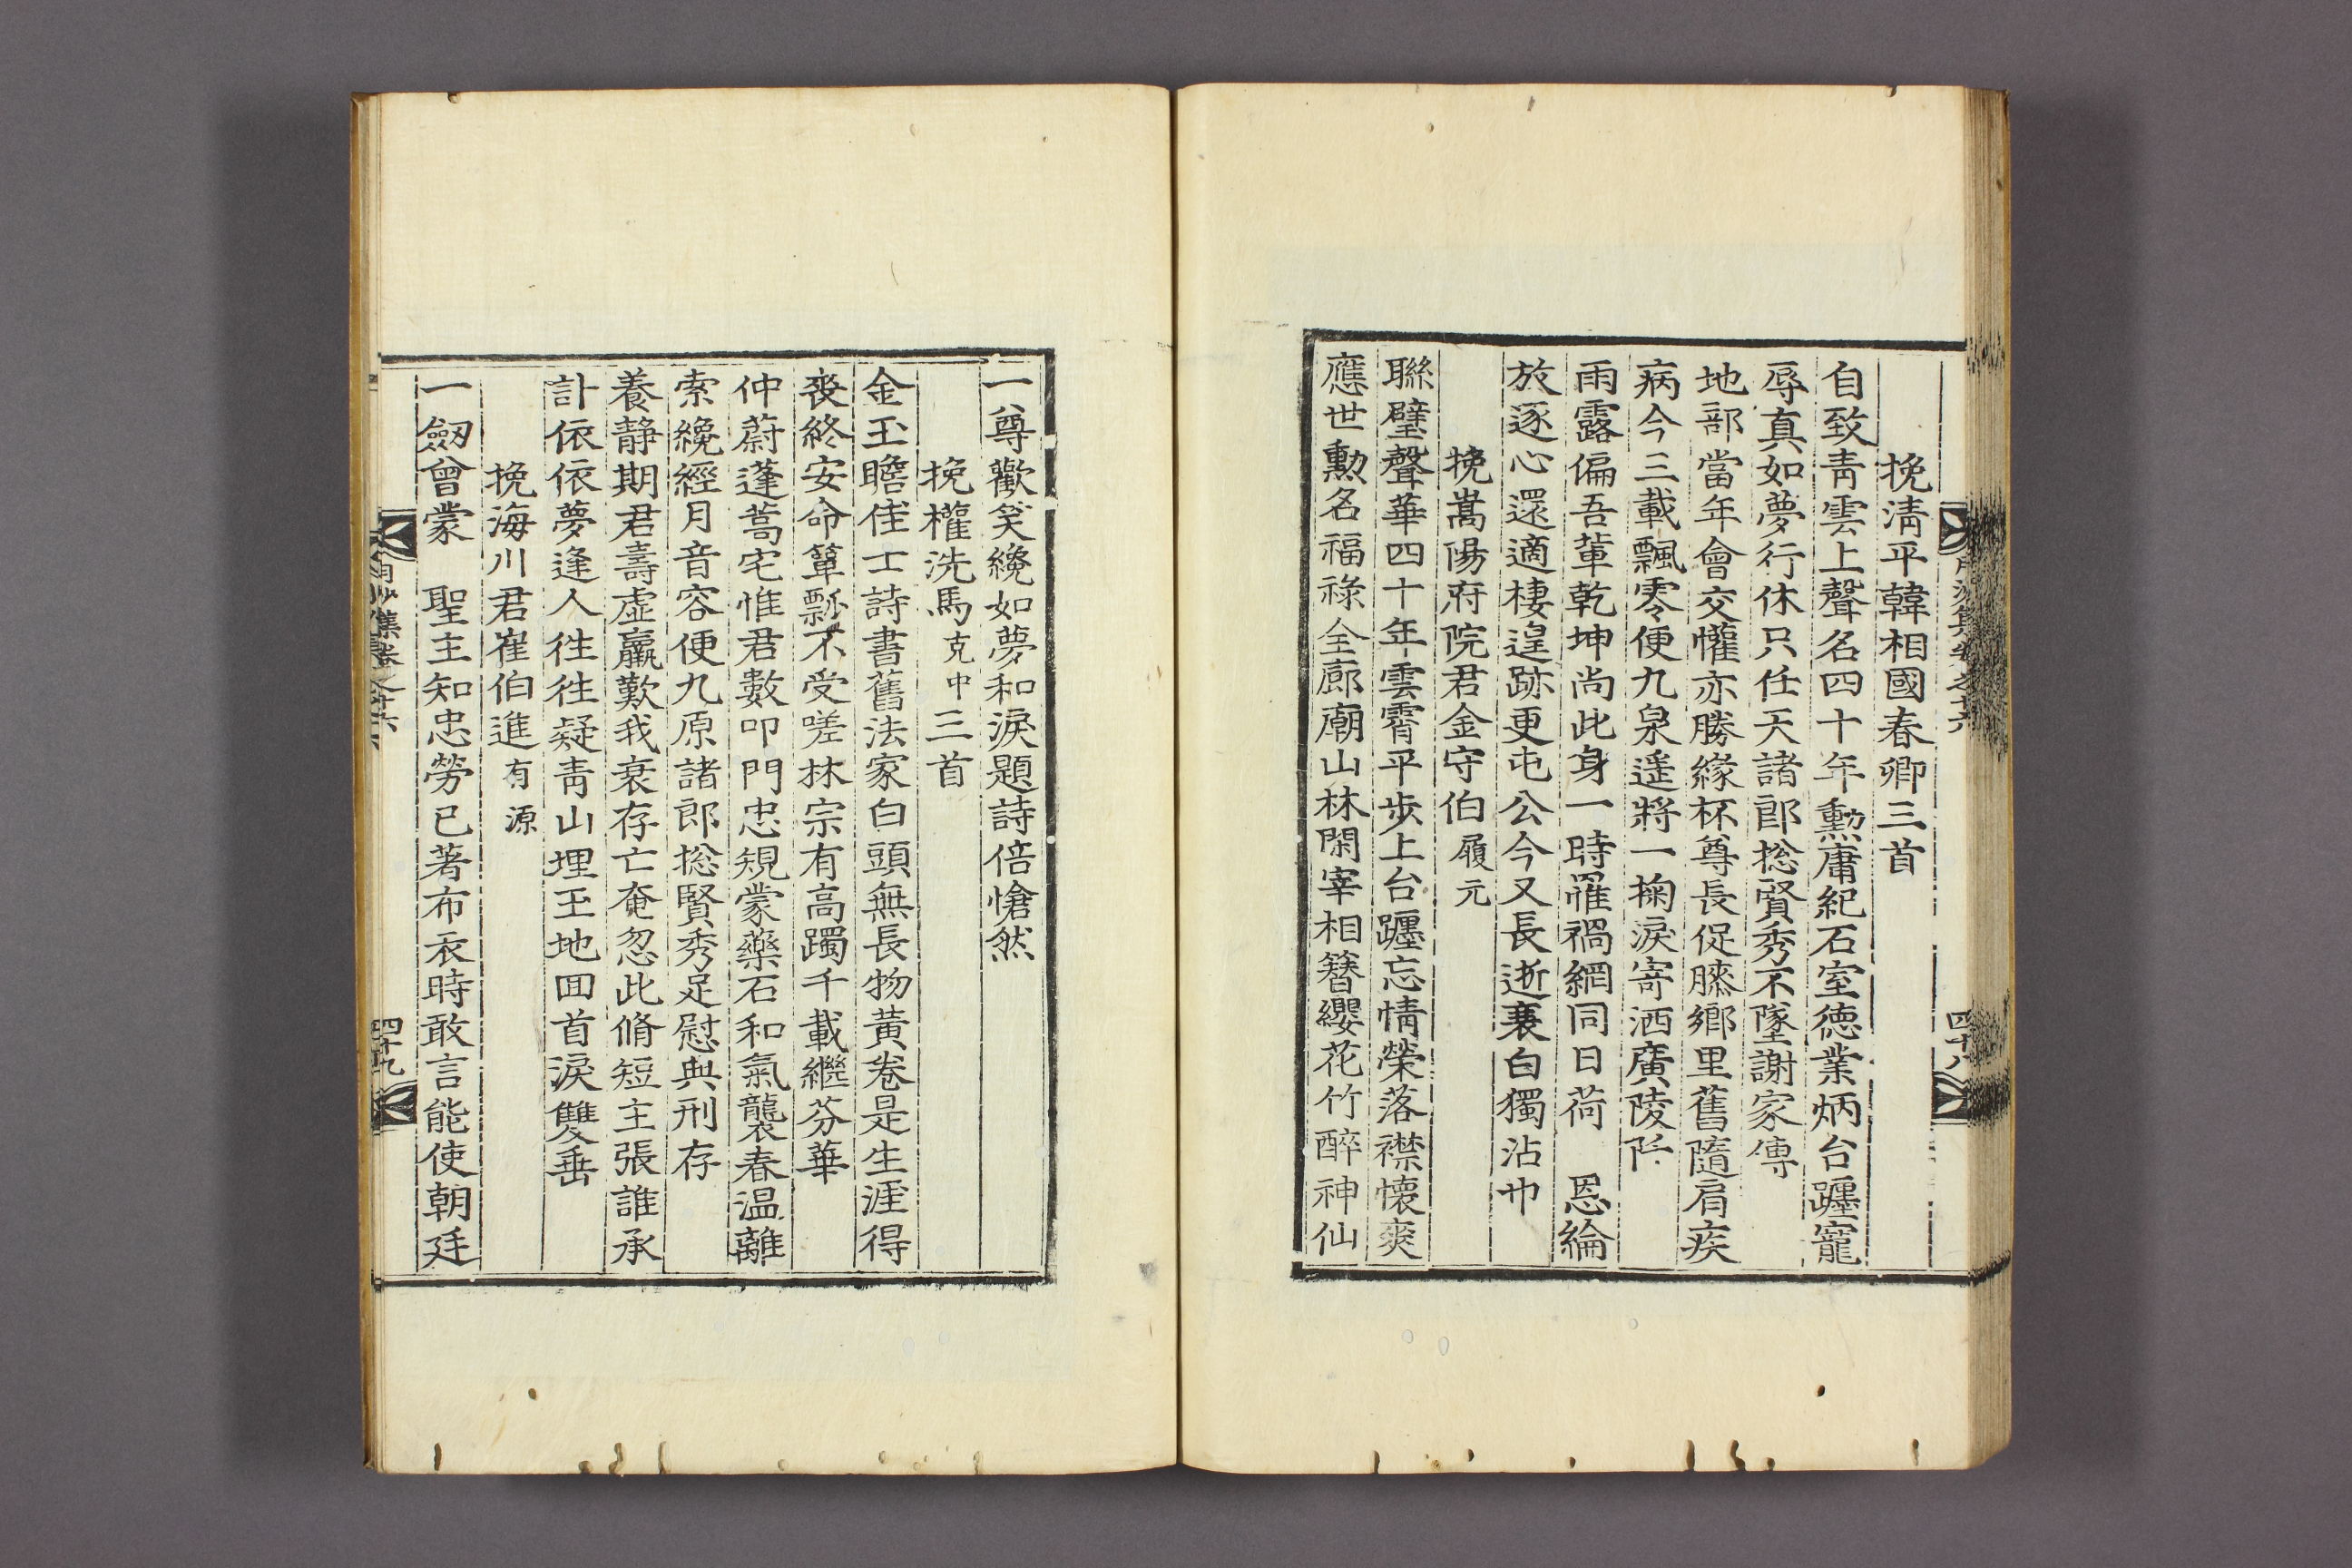 挽淸平韓相國春卿三首
自致靑雲上聲名四十年勳庸紀石室德業炳台躔寵
辱真如夢行休只任天諸郞捴賢秀不墜謝家傳
地部當年會交懽亦勝緣杯尊長促膝鄕里舊隨肩疾
病今三載飄零便九泉遥將一掬淚寄洒廣陵阡
雨露偏吾軰乾坤尚此身一時罹禍網同日荷　恩綸
放逐心還適棲遑跡更屯公今又長逝衰白獨沾巾
挽嵩陽府院君金守伯履元
聯璧聲華四十年雲霄平步上台躔忘情榮落襟懷爽
應世勳名福祿全廊廟山林閑宰相簪纓花竹醉神仙
四十八
一尊歡笑纔如夢和淚題詩倍愴然
挽權洗馬克中三首
金玉瞻佳士詩書舊法家白頭無長物黃卷是生涯得
喪終安命簞瓢不受嗟林宗有高躅千載繼芬華
仲蔚蓬蒿宅惟君數叩門忠規蒙藥石和氣襲春温離
索纔經月音容便九原諸郞捴賢秀足慰典刑存
養静期君壽虛羸歎我衰存亡奄忽此脩短主張誰承
訃依依夢逢人徃徃疑靑山埋玉地回首淚雙垂
挽海川君崔伯進有源
一劒曾蒙　聖主知忠勞已著布衣時敢言能使朝廷
四十九